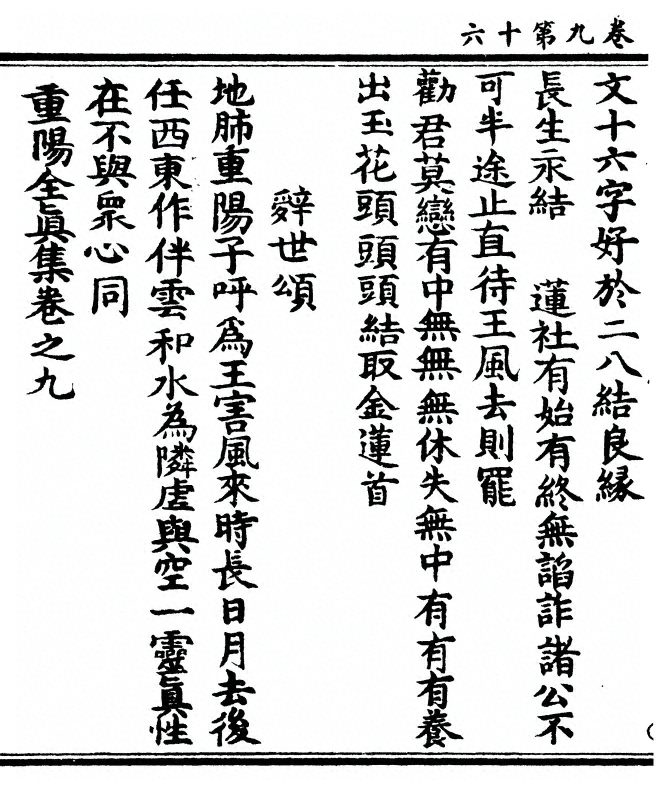 卷九第十六
文十六字好於二八結良緣
長生永結　蓮社有始有終無謟詐諸公不
可半途止直待王風去則罷
勸君莫戀有中無無無休失無中有有有養
出玉花頭頭頭結取金蓮首
辭世頌
地肺重陽子呼爲王害風來時長日月去後
任西東作伴雲和水為隣虛與空一靈眞性
在不與眾心同
重陽全眞集卷之九